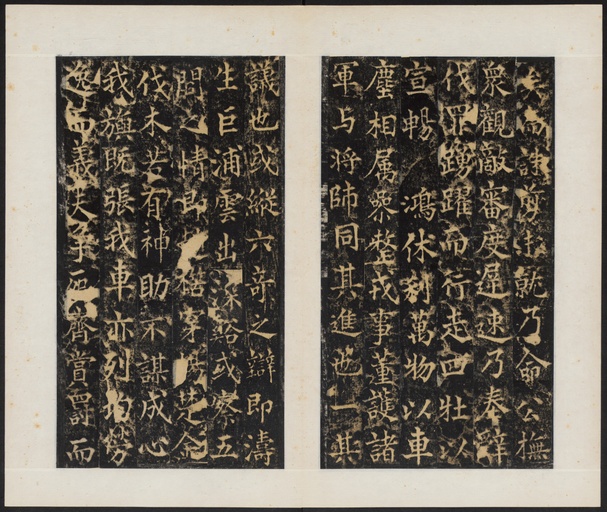 而誅剪未就乃命公撫
衆觀敵審度遲速乃奉辭
伐罪踴躍而行走四牡以
宣暢 鴻休利萬物以車
塵相属整戎事董護諸
軍与將帥同其進也一其
議也或縱六奇之辯即濤
生巨浦雲出深谿或察五
間之情即穿楚金
伐木若有神助不謀成心
我旗既張我車亦列均勞
逸而義夫爭死齊賞罰而